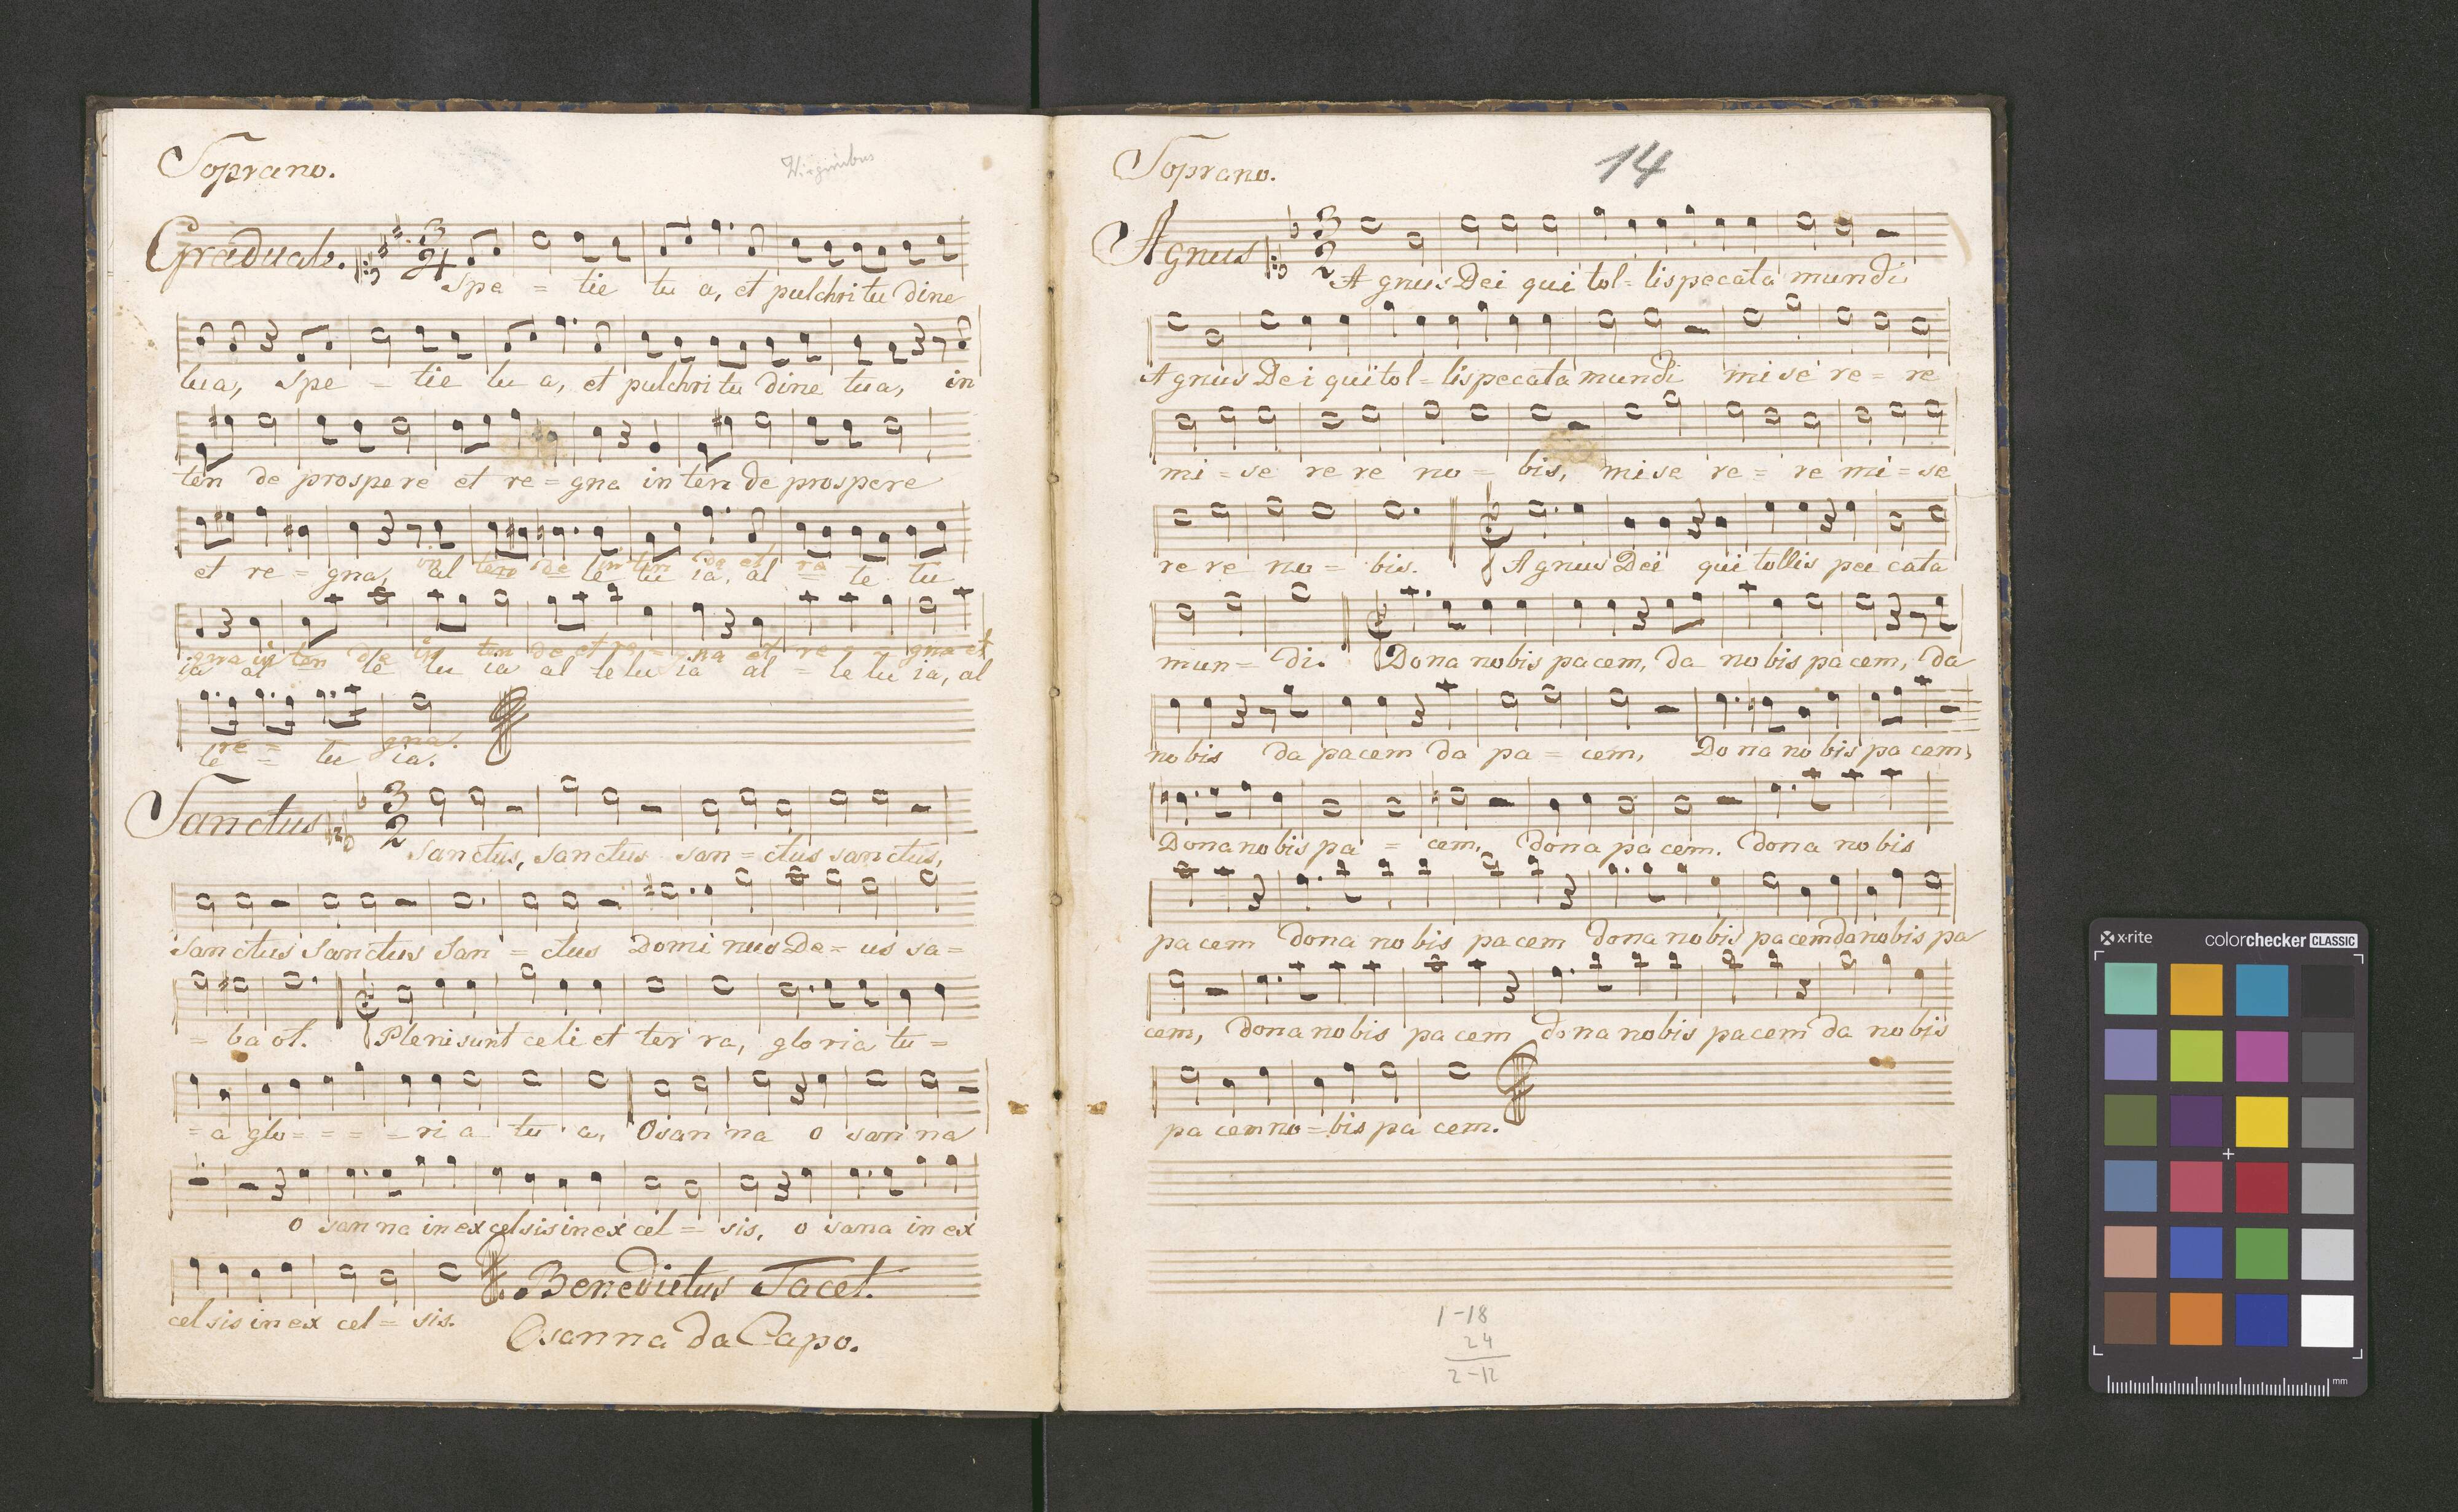 Soprano.
Virginibus
Graduale.
3/4
Spe = tie tu a, et pulchri tu dine
tua, Spe = tie tu a, et pulchri tu dine tua, in
ten de prospere et re = gna in ten de prospere
et re = gna, al = le lu ia, al = le lu
in ten de in ten de et re
gna in ten de in ten de et re = gna et re = gna et
ia al le lu ia al le lu ia al = le lu ia, al
re = gna.
le = lu ia.
Sanctus
3/2
Sanctus, sanctus san = ctus sanctus,
Sanctus Sanctus San = ctus Domi nus De = us sa =
= ba ot. Pleni sunt celi et ter ra, glo ria tu =
= a glo = = = = ri a tu a, Osan na o san na
o san na in ex celsis in ex cel = sis, o sana in ex
cel sis in ex cel = sis.
Benedictus Tacet.
Osanna da Capo.
Soprano.
14
Agnus
3/2
A gnus Dei qui tol = lis pecata mundi
A gnus Dei qui tol = lis pecata mundi mi se re = re
mi = se re re no = bis, mise re = re mi = se
re re no = bis. A gnus Dei qui tollis pec cata
mun = di. Dona nobis pacem, da no bis pa cem, da
no bis da pacem da pa = cem, Do na no bis pa cem,
Dona no bis pa = cem, dona pa cem. dona no bis
pa cem dona no bis pa cem dona nobis pacem da nobis pa
cem, dona nobis pa cem dona nobis pacem da no bis
pa cem no = bis pa cem.
1-18
24
2-12
x·rite
colorchecker CLASSIC
mm